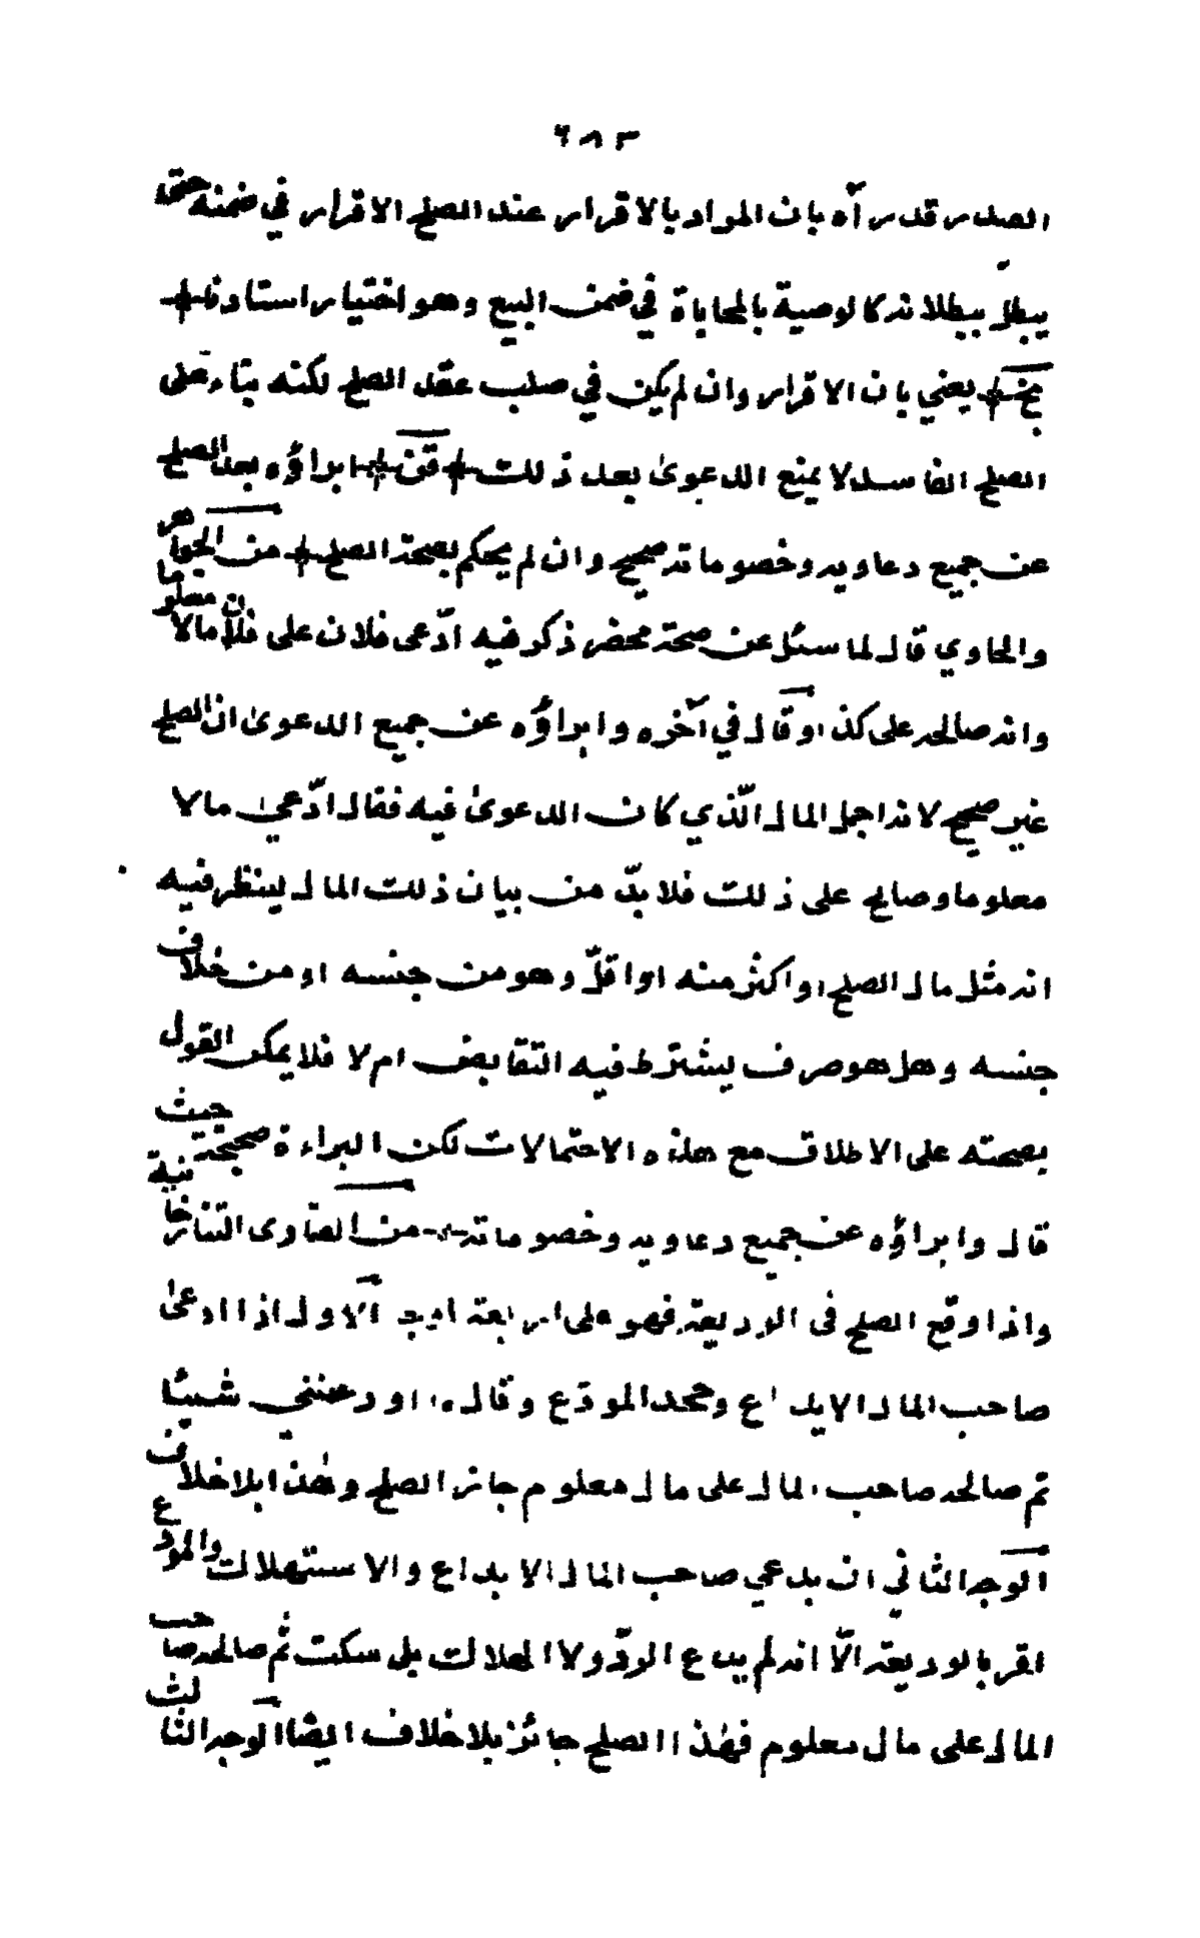 ٦٨٣
الصدر قدره آه بان المراد بالاقرار عند الصلح الاقرار في ضمنه حتى
يبطل ببطلانه كالوصية بالمحاباة في ضمن البيع وهو اختيار استادنا
يعني بان الاقرار وان لم يكن في صلب عقد الصلح لكنه بناء على
الصلح الفاسد لا يمنع الدعوى بعد ذلك ابراؤه بعد الصلح
عن جميع دعاويه وخصوماته صحيح وان لم يحكم بصحة الصلح من الجواهر
والحاوي قال لما سئل عن صحة محضر ذكر فيه ادّعى فلان على فلان مالا معلوما
وانه صالحه على كذا وقال في آخره وابراؤه عن جميع الدعوى ان الصلح
غير صحيح لانه اجمل المال الّذي كان الدعوى فيه فقال ادّعى مالا
معلوما وصالح على ذلك فلا بدّ من بيان ذلك المال لينظر فيه
انه مثل مال الصلح او اكثر منه او اقلّ وهو من جنسه او من خلاف
جنسه وهل هو صرف يشترط فيه التقابض ام لا فلا يمكن القول
بصحته على الاطلاق مع هذه الاحتمالات لكن البراءة صحيحة حيث
قال وابراؤه عن جميع دعاويه وخصوماته من الفتاوى التتارخانية
واذا وقع الصلح في الوديعة فهو على اربعة اوجه الاول اذا ادعى
صاحب المال الايداع وجحد المودع وقال ما اودعتني شيئا
ثم صالحه صاحب المال على مال معلوم جاز الصلح وهذا بلا خلاف
الوجه الثاني ان يدعي صاحب المال الايداع والاستهلاك والمودع
اقر بالوديعة الّا انه لم يدع الردّ ولا الهلاك بل سكت ثم صالحه صاحب
المال على مال معلوم فهذا الصلح جائز بلا خلاف ايضا الوجه الثالث